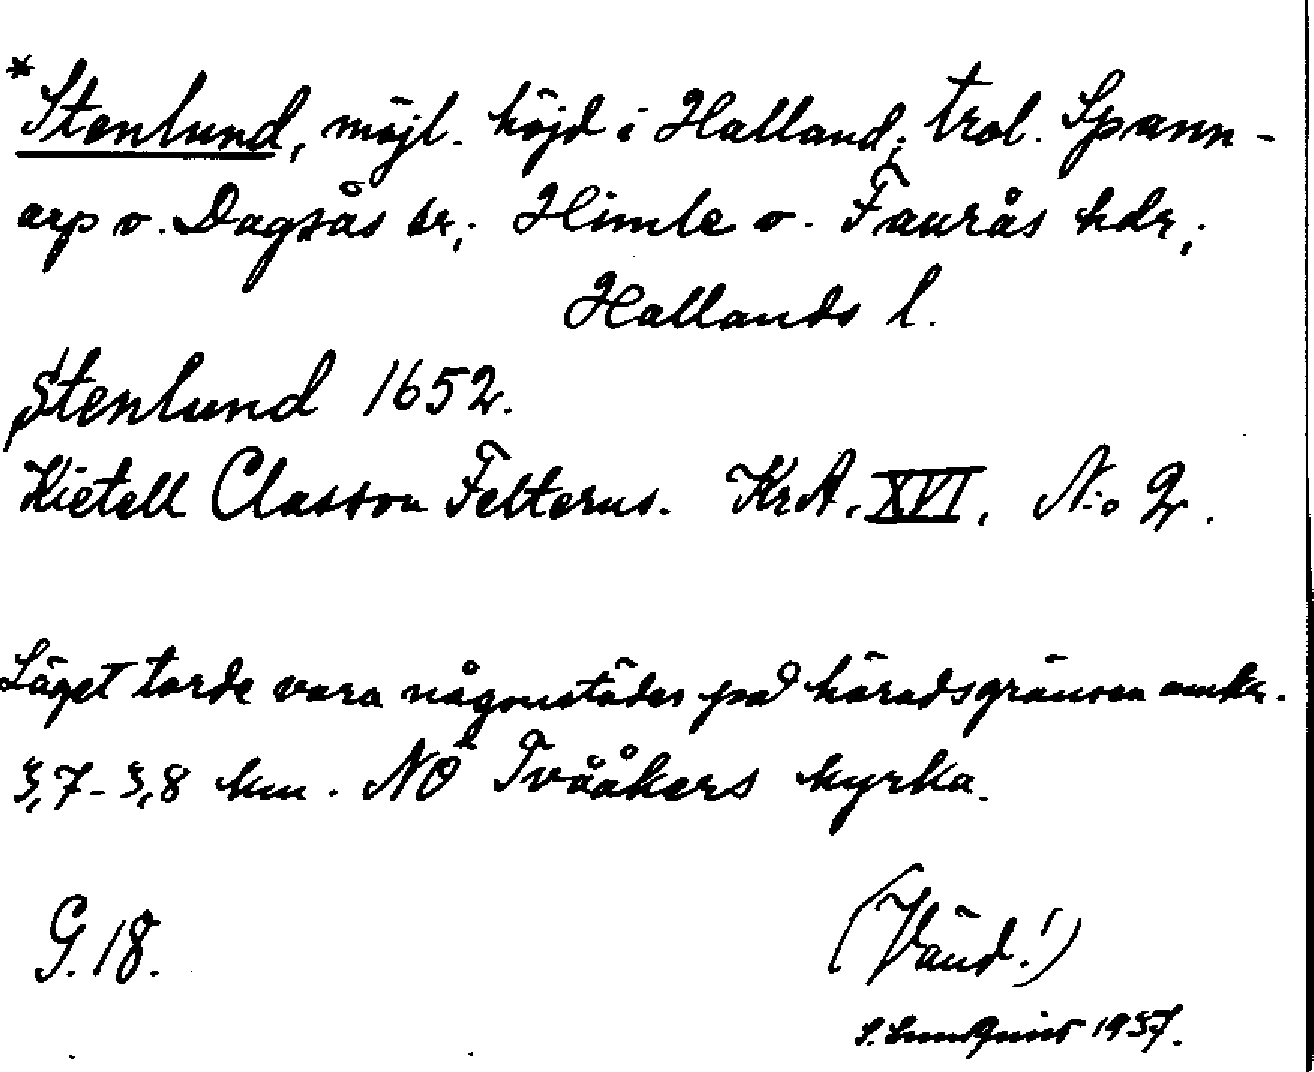 *Stenlund, möjl. höjd i Halland; trol. Spann-
arp o. Dagsås sr; Himle o. Faurås hdr;
Hallands l.
Stenlund 1652.
Kietell Classon Felterus. KrA. XVI. N:o 2.
Läget torde vara någonstädes på häradsgränsen omkr.
3,7-3,8 km. NÖ Tvååkers kyrka.
G. 18. (Vänd!)
S. Lundquist 1937.